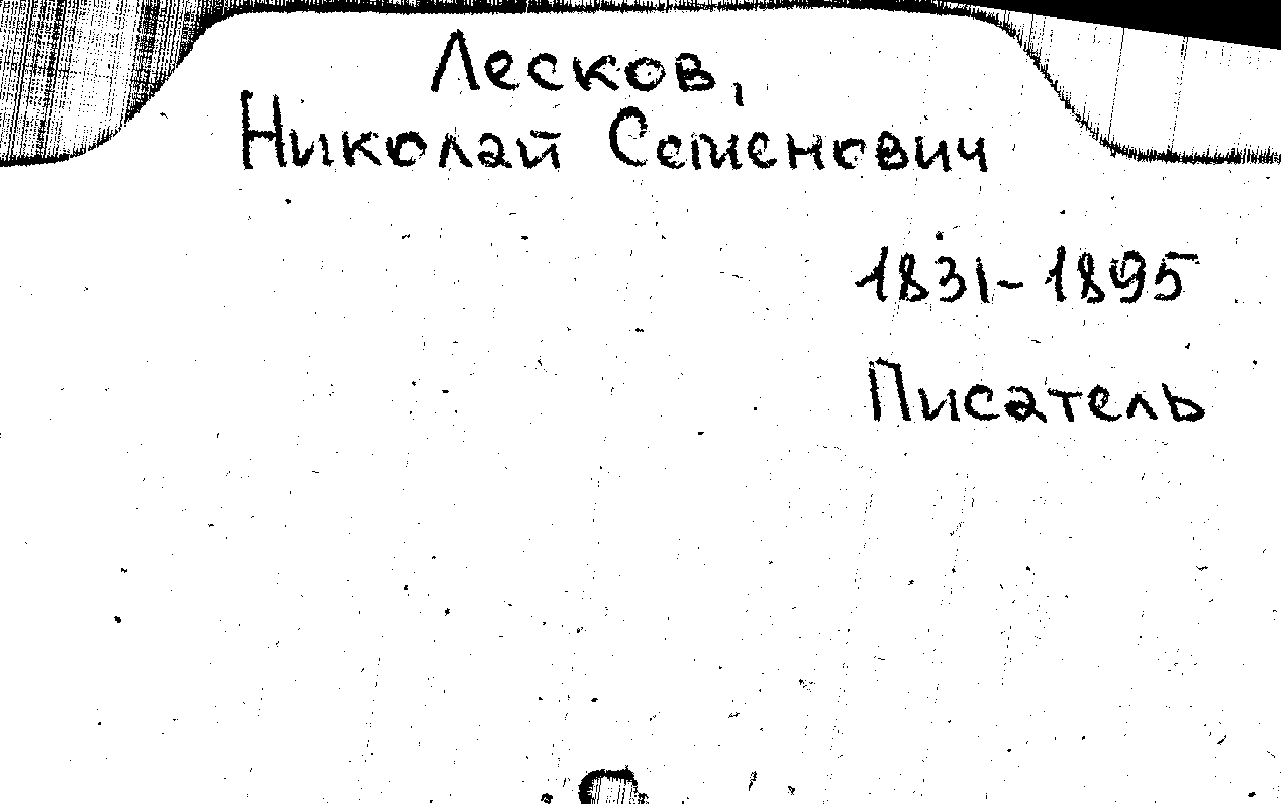 Лесков,
Николай Семенович
1831-1895
Писатель